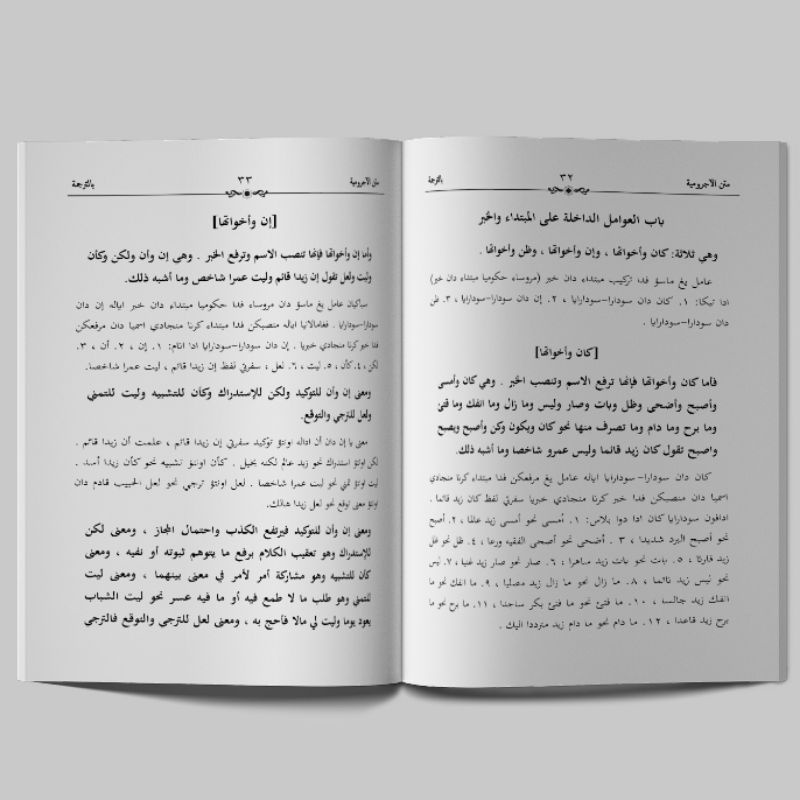 متن الآجرومية ٣٢ بالترجمة
باب العوامل الداخلة على المبتداء والخبر
وهي ثلاثة: كان وأخواتها ، وإن وأخواتها ، وظن وأخواتها .
عامل يغ ماسؤ فدا تركيب مبتداء دان خبر (مروساء حكوميا مبتداء دان خبر)
ادا تيكا: ١. كان دان سودارا–سودارايا ، ٢. إن دان سودارا–سودارايا ، ٣. ظن
دان سودارا–سودارايا .
[كان وأخواتها]
فأما كان وأخواتها فإنها ترفع الاسم وتنصب الخبر . وهي كان وأمسى
وأصبح وأضحى وظل وبات وصار وليس وما زال وما انفك وما فتئ
وما برح وما دام وما تصرف منها نحو كان ويكون وكن وأصبح ويصبح
واصبح تقول كان زيد قائما وليس عمرو شاخصا وما أشبه ذلك.
كان دان سودارا–سودارايا اياله عامل يغ مرفعكن فدا مبتداء كرنا منجادي
اسميا دان منصبكن فدا خبر كرنا منجادي خبريا سفرتي لفظ كان زيد قائما .
ادافون سودارايا كان ادا دوا بلاس: ١. أمسى نحو أمسى زيد عالما ، ٢. أصبح
نحو أصبح البرد شديدا ، ٣. أضحى نحو أضحى الفقيه ورعا ، ٤. ظل نحو ظل
زيد قارئا ، ٥. بات نحو بات زيد ساهرا ، ٦. صار نحو صار زيد غنيا ، ٧. ليس
نحو ليس زيد نائما ، ٨. ما زال نحو ما زال زيد مصليا ، ٩. ما انفك نحو ما
انفك زيد جالسا ، ١٠. ما فتئ نحو ما فتئ بكر ساجدا ، ١١. ما برح نحو ما
برح زيد قاعدا ، ١٢. ما دام نحو ما دام زيد مترددا اليك .
متن الآجرومية ٣٣ بالترجمة
[إن وأخواتها]
وأما إن وأخواتها فإنها تنصب الاسم وترفع الخبر . وهي إن وأن ولكن وكأن
وليت ولعل تقول إن زيدا قائم وليت عمرا شاخص وما أشبه ذلك.
سباكيان عامل يغ ماسؤ دان مروساء فدا حكوميا مبتداء دان خبر اياله إن دان
سودارا–سودارايا . فعامالانيا اياله منصبكن فدا مبتداء كرنا منجادي اسميا دان مرفعكن
فدا خبر كرنا منجادي خبريا . إن دان سودارا–سودارايا ادا انام: ١. إن ، ٢. أن ، ٣.
لكن ، ٤. كأن ، ٥. ليت ، ٦. لعل ، سفرتي لفظ إن زيدا قائم ، ليت عمرا شاخصا.
ومعنى إن وأن للتوكيد ولكن للإستدراك وكأن للتشبيه وليت للتمني
ولعل للترجي والتوقع.
معنى يا إن دان أن اداله اونتؤ توكيد سفرتي إن زيدا قائم ، علمت أن زيدا قائم .
لكن اونتؤ استدراك نحو زيد عالم لكنه بخيل . كأن اونتؤ تشبيه نحو كأن زيدا أسد .
ليت اونتؤ تمني نحو ليت عمرا شاخصا . لعل اونتؤ ترجي نحو لعل الحبيب قادم دان
اونتؤ معنى توقع نحو لعل زيدا هالك.
ومعنى إن وأن للتوكيد فيرتفع الكذب واحتمال المجاز ، ومعنى لكن
للإستدراك وهو تعقيب الكلام برفع ما يتوهم ثبوته أو نفيه ، ومعنى
كأن للتشبيه وهو مشاركة أمر لأمر في معنى بينهما ، ومعنى ليت
للتمني وهو طلب ما لا طمع فيه أو ما فيه عسر نحو ليت الشباب
يعود يوما وليت لي مالا فأحج به ، ومعنى لعل للترجي والتوقع فالترجي